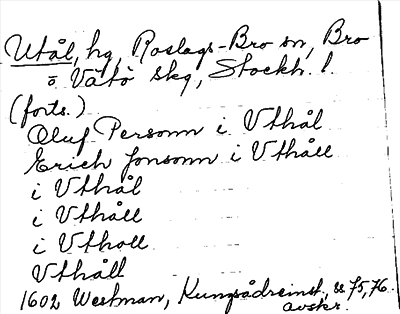 Utål, hg, Roslags-Bro sn, Bro
o Vätö skg, Stockh. l.
(forts.)
Oluf Personn i Vthål
Erich Jonsonn i Vthåll
i Vthål
i Vthåll
i Vtholl
Vthåll
1602 Westman, Kungsådreinst., ss 75, 76.
avskr.